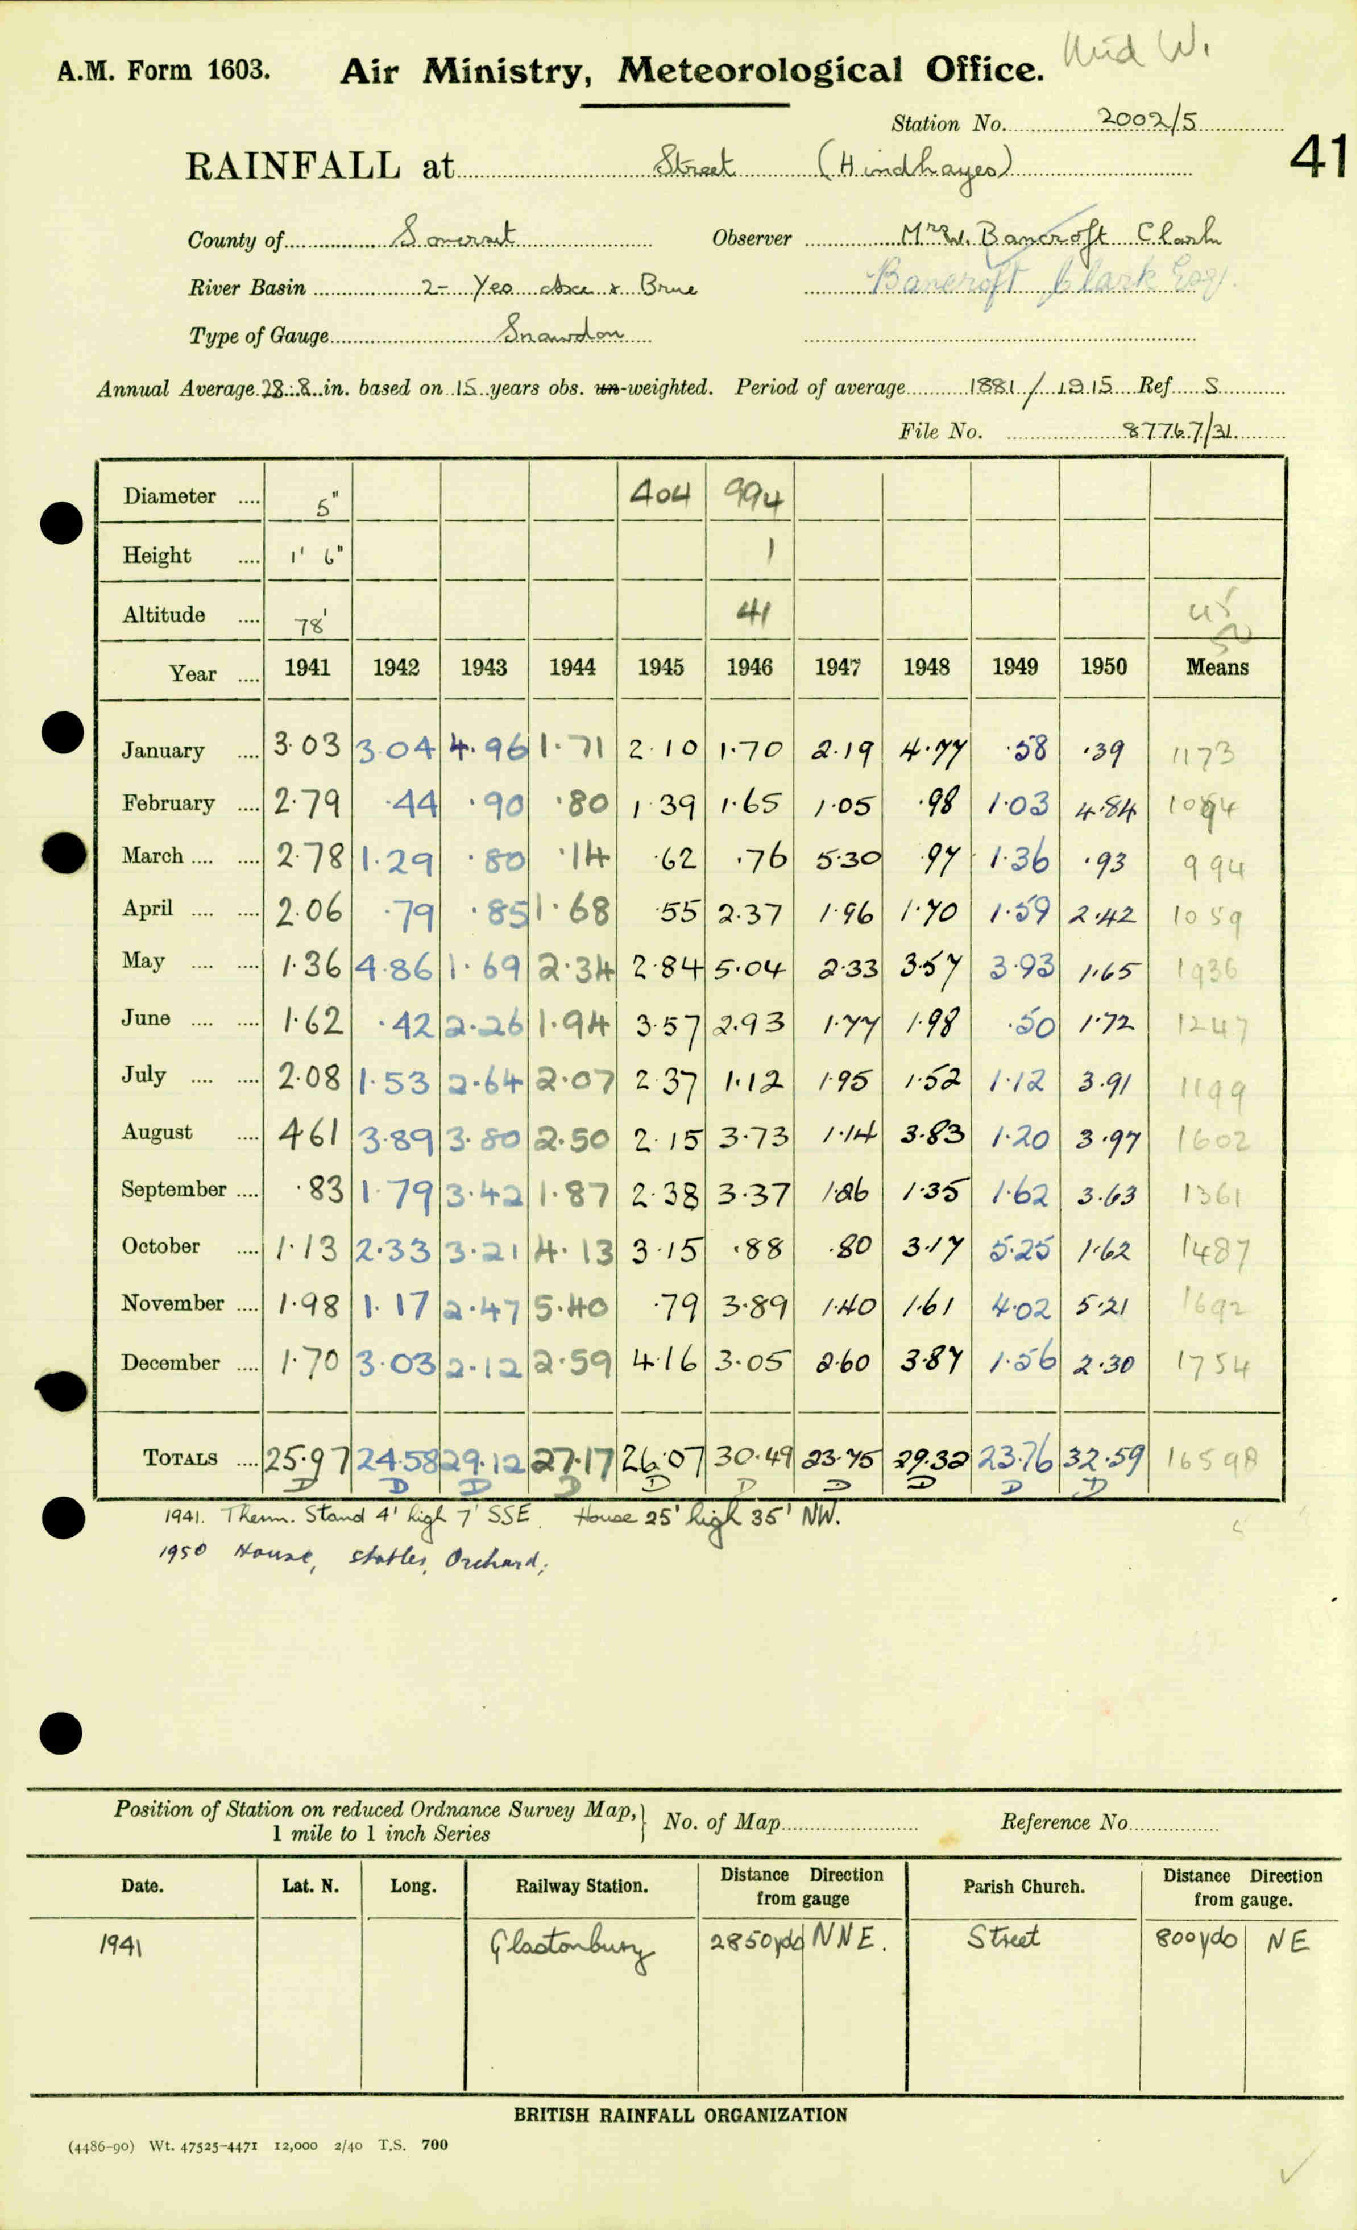 Mid W.
A.M. Form 1603. Air Ministry, Meteorological Office.
Station No. 2002/5
41
RAINFALL at Street (Hindhayes)
County of Somerset Observer Mrs W. Bancroft Clark
Bancroft Clark Esq.
River Basin 2- Yeo Axe & Brue
Type of Gauge Snowdon
Annual Average 28.8 in. based on 15 years obs. un-weighted. Period of average 1881/1915 Ref S
File No. 87767/31
Diameter .... 5" 404 994
Height .... 1' 6" 1
Altitude .... 78' 41 45
50
Year .... 1941 1942 1943 1944 1945 1946 1947 1948 1949 1950 Means
January .... 3.03 3.04 4.96 1.71 2.10 1.70 2.19 4.77 .58 .39 1173
February .... 2.79 .44 .90 .80 1.39 1.65 1.05 .98 1.03 4.84
March .... .... 2.78 1.29 .80 .14 .62 .76 5.30 .97 1.36 .93 994
April .... .... 2.06 .79 .85 1.68 .55 2.37 1.96 1.70 1.59 2.42 1059
May .... .... 1.36 4.86 1.69 2.34 2.84 5.04 2.33 3.57 3.93 1.65 1936
June .... .... 1.62 .42 2.26 1.94 3.57 2.93 1.77 1.98 .50 1.72 1247
July .... .... 2.08 1.53 2.64 2.07 2.37 1.12 1.95 1.52 1.12 3.91 1199
August .... 4.61 3.89 3.80 2.50 2.15 3.73 1.14 3.83 1.20 3.97 1602
September .... .83 1.79 3.42 1.87 2.38 3.37 1.26 1.35 1.62 3.63 1361
October .... 1.13 2.33 3.21 4.13 3.15 .88 .80 3.17 5.25 1.62 1487
November .... 1.98 1.17 2.47 5.40 .79 3.89 1.40 1.61 4.02 5.21 1692
December .... 1.70 3.03 2.12 2.59 4.16 3.05 2.60 3.87 1.56 2.30 1754
TOTALS .... 25.97 24.58 29.12 27.17 26.07 30.49 23.75 29.32 23.76 32.59 16598
D D D D D D D D D D
1941. Therm. Stand 4' high 7' SSE. House 25' high 35' NW.
1950 House, stables, Orchard;
Position of Station on reduced Ordnance Survey Map, 1 mile to 1 inch Series } No. of Map Reference No
Date. Lat. N. Long. Railway Station. Distance Direction from gauge Parish Church. Distance Direction from gauge.
1941 Glastonbury 2850yds NNE. Street 800yds NE
BRITISH RAINFALL ORGANIZATION
(4486-90) Wt. 47525-4471 12,000 2/40 T.S. 700